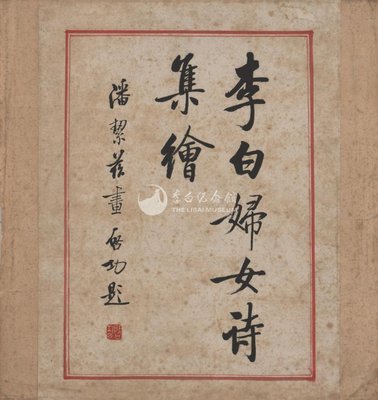 李白婦女詩
集繪
潘絜茲畫 啓功題
李白纪念馆
THE LIBAI MUSEUM